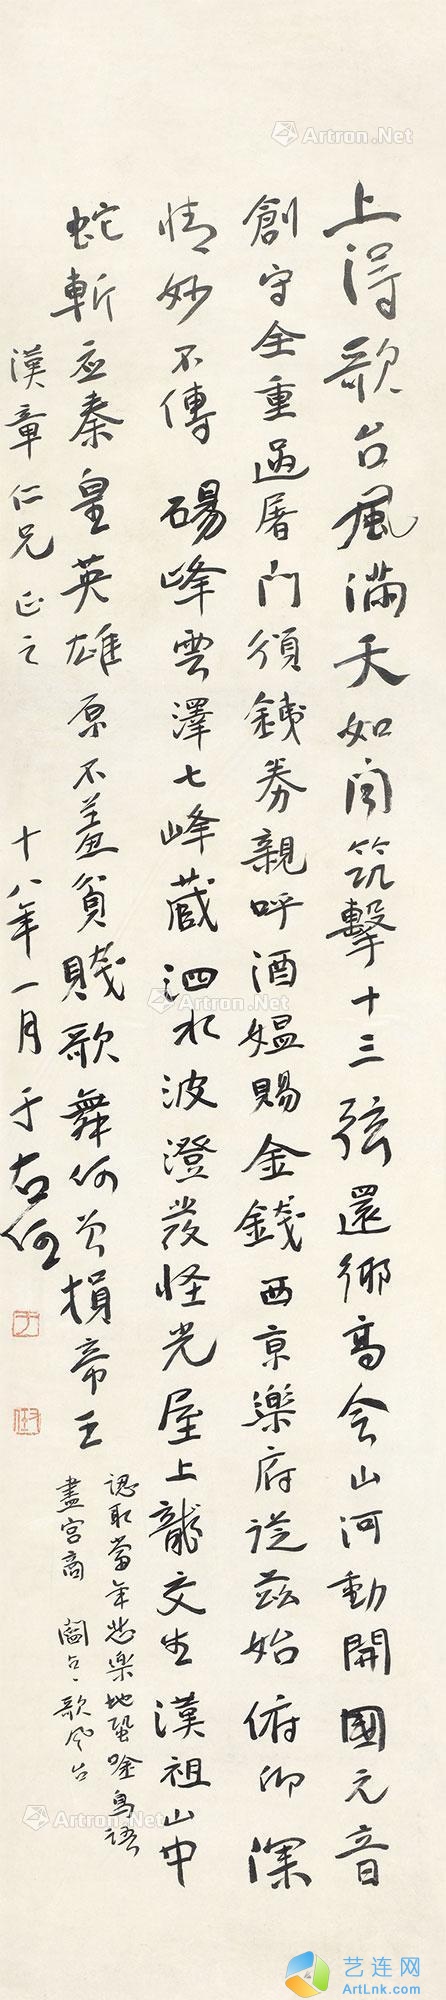 上得歌台風滿天如聞筑擊十三弦還鄉高会山河動開國元音
創守全重過屠門頒鉄券親呼酒媼賜金錢西京樂府從茲始俯仰深
情妙不傳 碭峰雲澤七峰蔵泗水波澄發怪光屋上龍交生漢祖山中
蛇斬应秦皇英雄原不羞貧賤歌舞何曾損帝王
認取當年悲樂地蛩唫鳥語
盡宮商 閻古古歌风台
漢章仁兄正之
十八年一月 于右任
Artron.Net
Artron.Net
Artron.Net
艺连网
ArtLnk.com